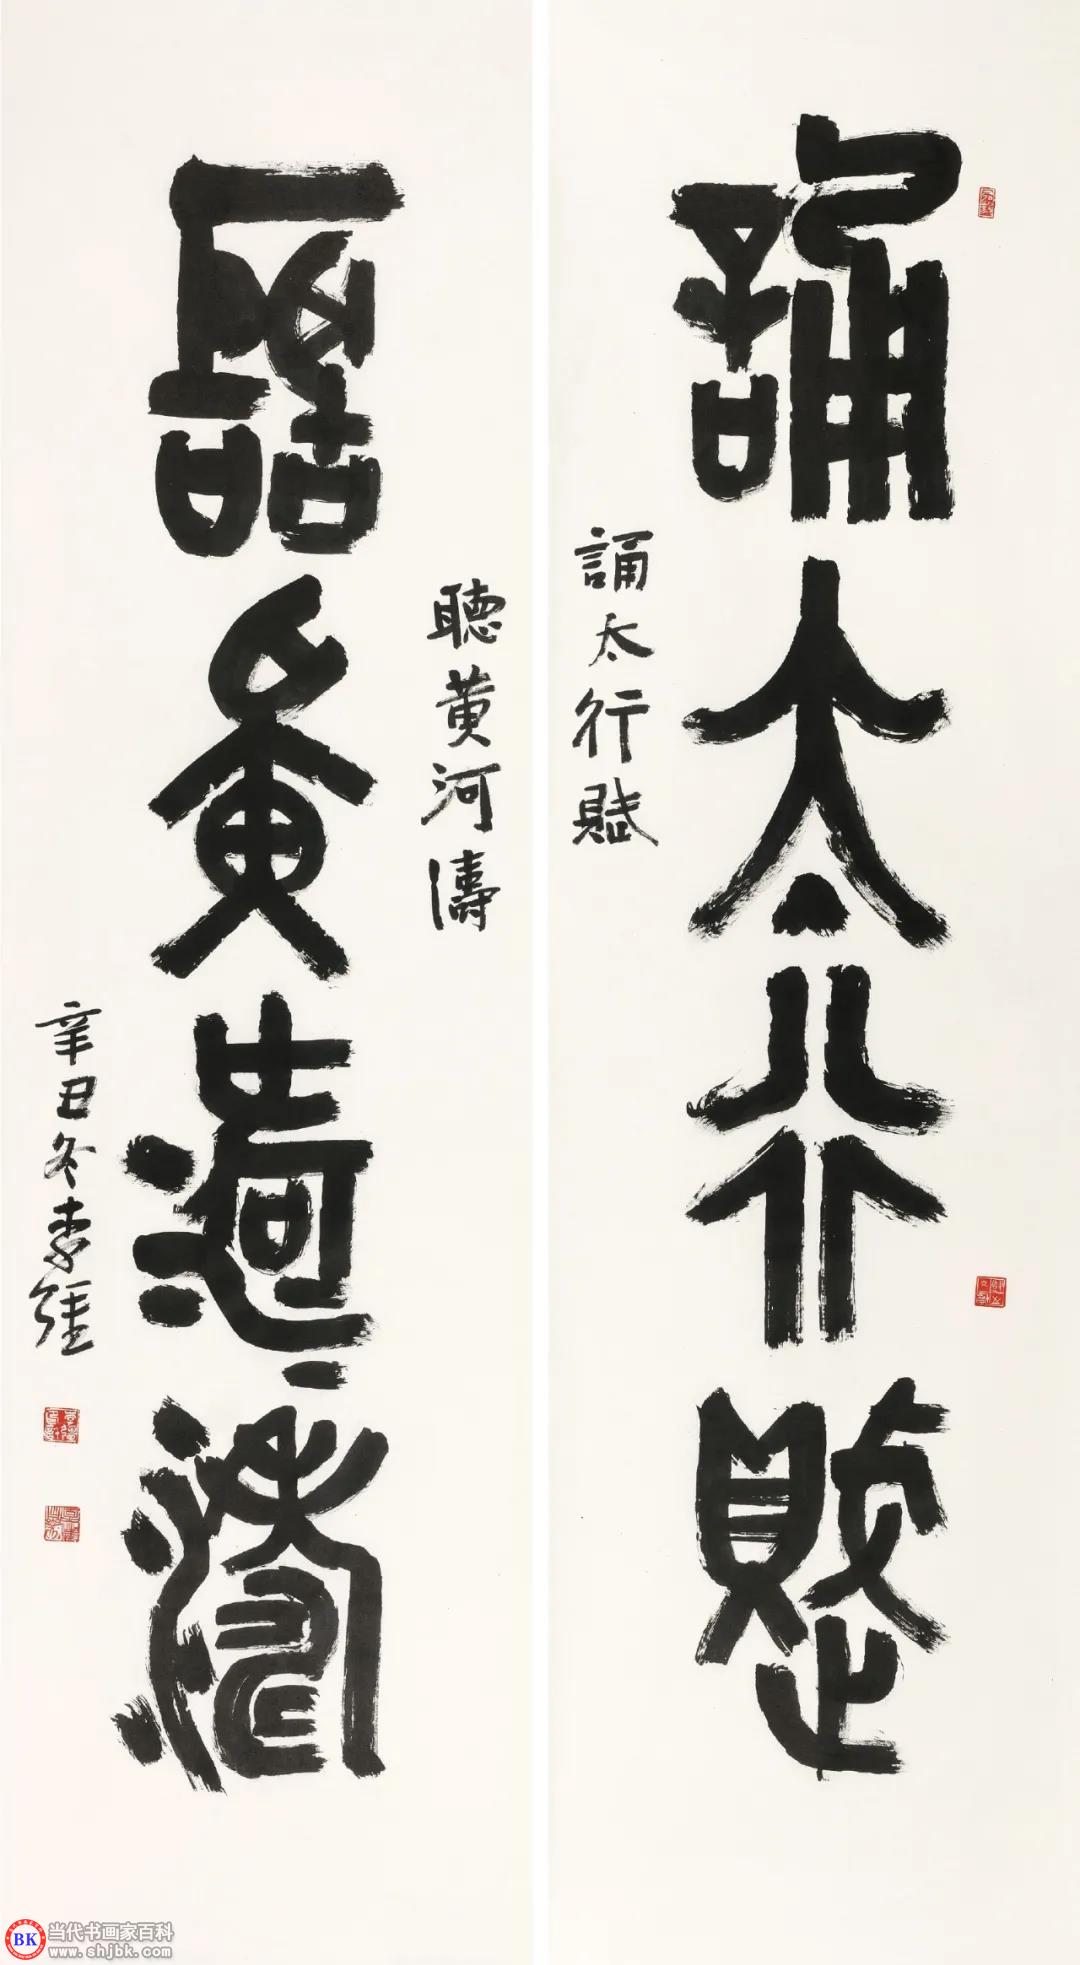 誦太行賦
誦太行賦
聽黃河濤
聽黃河濤
辛丑冬李強
BK 当代书画家百科
www.shjbk.com